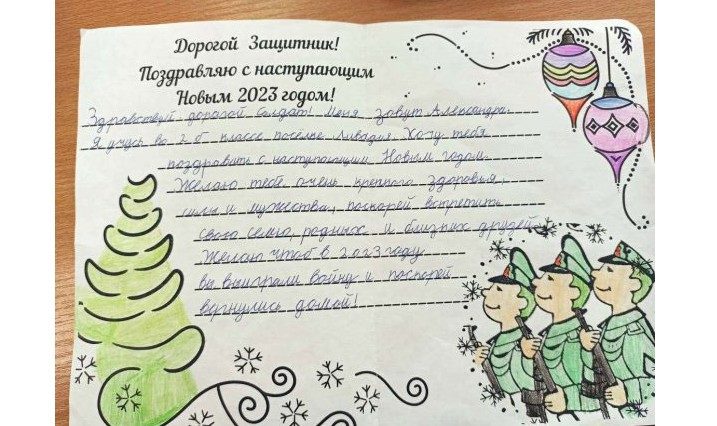 Дорогой Защитник!
Поздравляю с наступающим
Новым 2023 годом!
Здравствуй дорогой Солдат! Меня зовут Александра.
Я учусь во 2-б классе поселке Ливадия. Хочу тебя
поздравить с наступающим Новым годом.
Желаю тебе очень крепкого здоровья,
силы и мужества, поскорей встретить
свою семью, родных и близких друзей.
Желаю чтоб в 2023 году
вы выиграли войну и поскорей
вернулись домой!